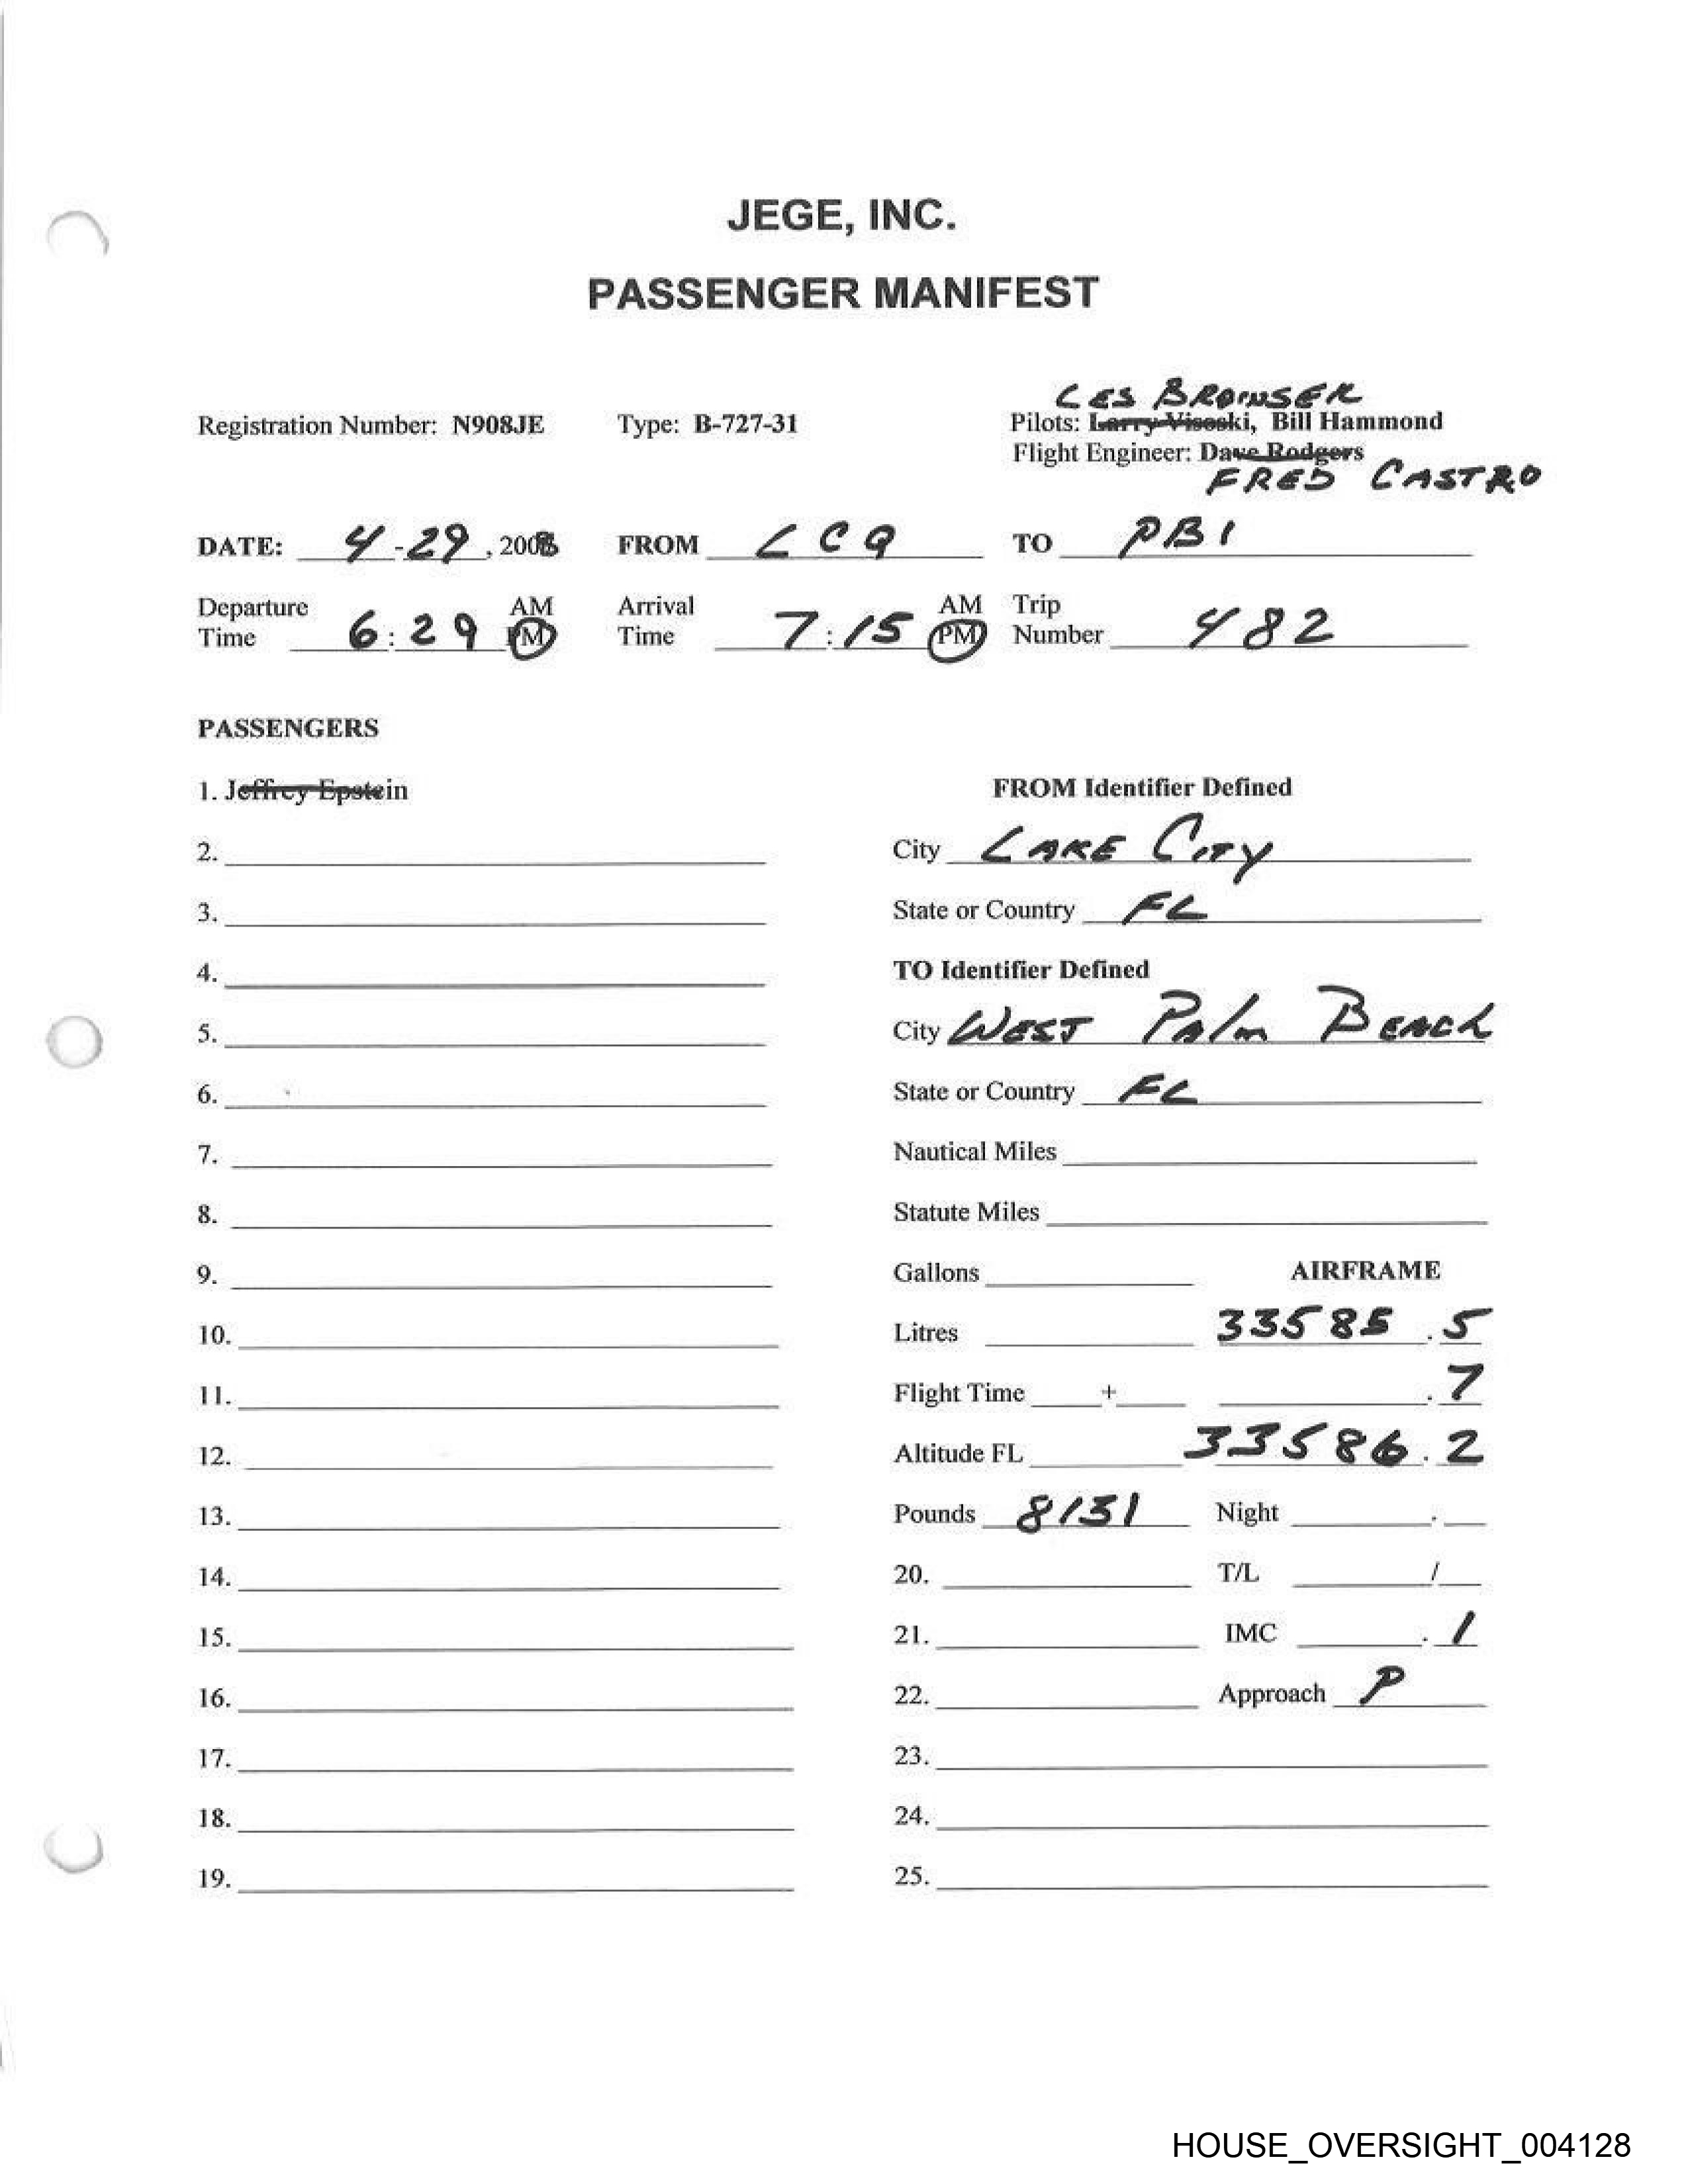 JEGE, INC.
PASSENGER MANIFEST
LES
Registration Number: N908JE Type: B-727-31 Pilots: Larry Visoski, Bill Hammond
Flight Engineer: Dave Rodgers
FRED CASTRO
DATE: 4-29, 200 FROM LCQ TO PBI
Departure Time 6:29 AM PM Arrival Time 7:15 AM PM Trip Number 482
PASSENGERS
1. Jeffrey Epstein FROM Identifier Defined
2. City LAKE CITY
3. State or Country FL
4. TO Identifier Defined
5. City WEST Palm BEACh
6. State or Country FL
7. Nautical Miles
8. Statute Miles
9. Gallons AIRFRAME
10. Litres 33585.5
11. Flight Time + .7
12. Altitude FL 33586.2
13. Pounds 8131 Night .
14. 20. T/L /
15. 21. IMC .1
16. 22. Approach P
17. 23.
18. 24.
19. 25.
HOUSE_OVERSIGHT_004128